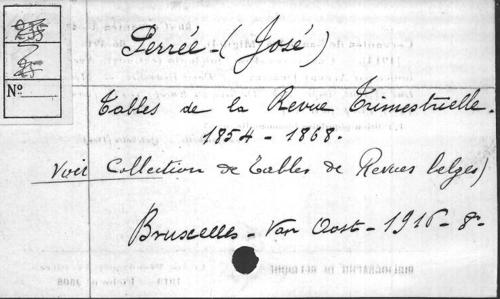 Perrée - (José)
Nº
Tables de la Revue Trimestrielle.
1854 - 1868.
Voir Collection de Tables de Revues belges)
Bruxelles - Van Oost - 1916 - 8º